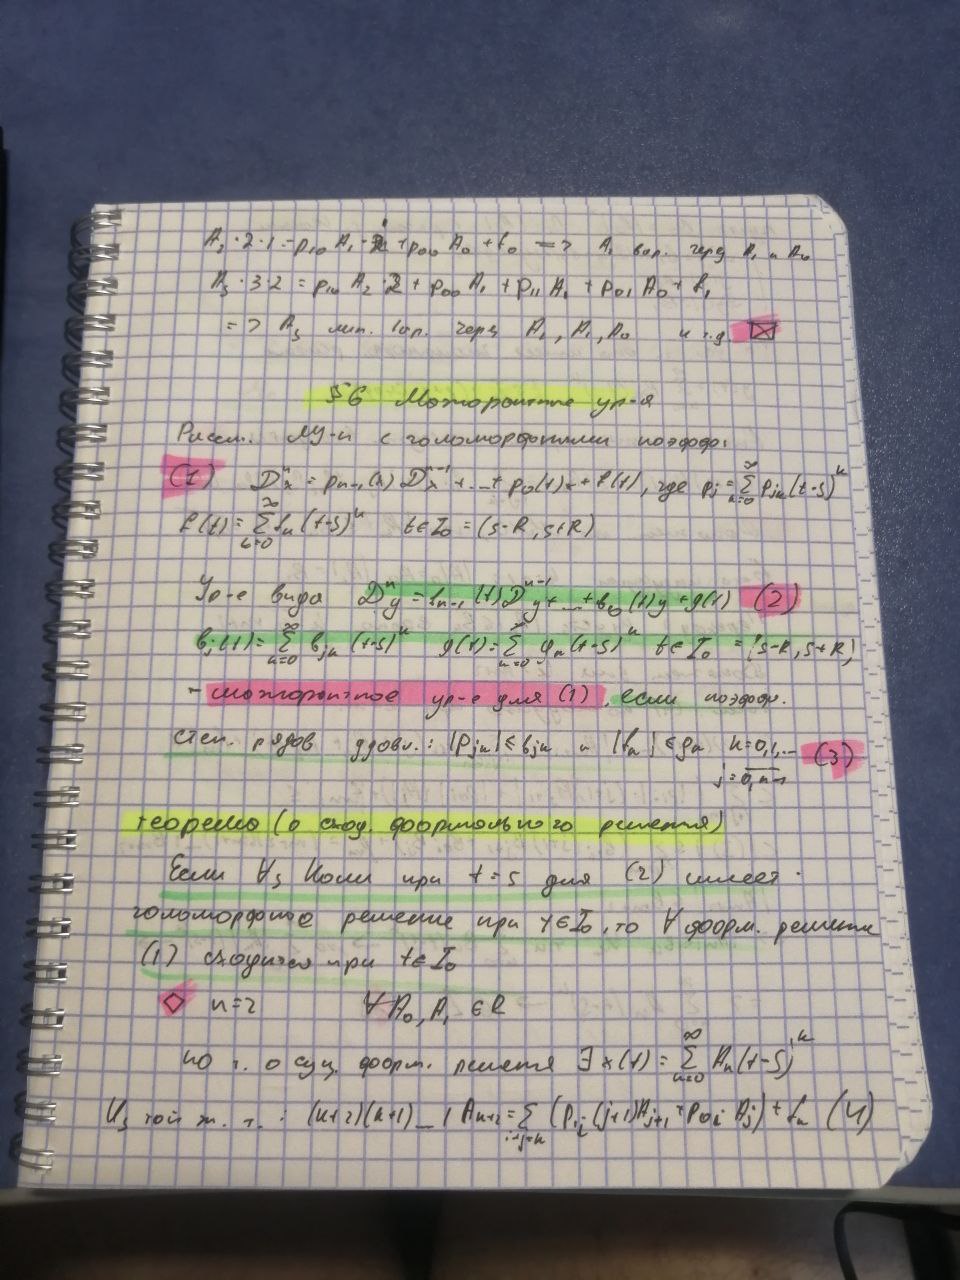 A₂·2·1 = p₁₀ A₁·1 + p₀₀ A₀ + f₀ => A₂ выр. через A₁ и A₀
A₃·3·2 = p₁₀ A₂·2 + p₀₀ A₁ + p₁₁ A₁ + p₀₁ A₀ + f₁
=> A₃ лин. выр. через A₂, A₁, A₀ и т.д. ☒
§6 Мажорантные ур-я
Рассм. ЛУ-n с голоморфными коэфф:
(1) Dⁿx = pₙ₋₁(t) Dⁿ⁻¹x + ... + p₀(t)x + f(t), где pⱼ = ∑_{k=0}^∞ pⱼₖ(t-s)ᵏ
f(t) = ∑_{k=0}^∞ fₖ(t-s)ᵏ t∈I₀ = (s-R, s+R)
Ур-е вида Dⁿy = bₙ₋₁(t)Dⁿ⁻¹y + ... + b₀(t)y + g(t) (2)
bⱼ(t) = ∑_{k=0}^∞ bⱼₖ(t-s)ᵏ g(t) = ∑_{k=0}^∞ gₖ(t-s)ᵏ t∈I₀ = (s-R, s+R)
- мажорантное ур-е для (1), если коэфф.
степ. рядов удовл.: |pⱼₖ| ≤ bⱼₖ и |fₖ| ≤ gₖ k=0,1,... (3)
j=0,n-1
Теорема (о сход. формального решения)
Если ∀з Коши при t=s для (2) имеет
голоморфное решение при t∈I₀, то ∀ форм. решение
(1) сходится при t∈I₀
◇ n=2 ∀A₀, A₁ ∈ R
по т. о сущ. форм. решения ∃ x(t) = ∑_{k=0}^∞ Aₖ(t-s)ᵏ
Из той ж. т.: (k+2)(k+1) Aₖ₊₂ = ∑_{i+j=k} (p₁ᵢ(j+1)Aⱼ₊₁ + p₀ᵢ Aⱼ) + fₖ (4)